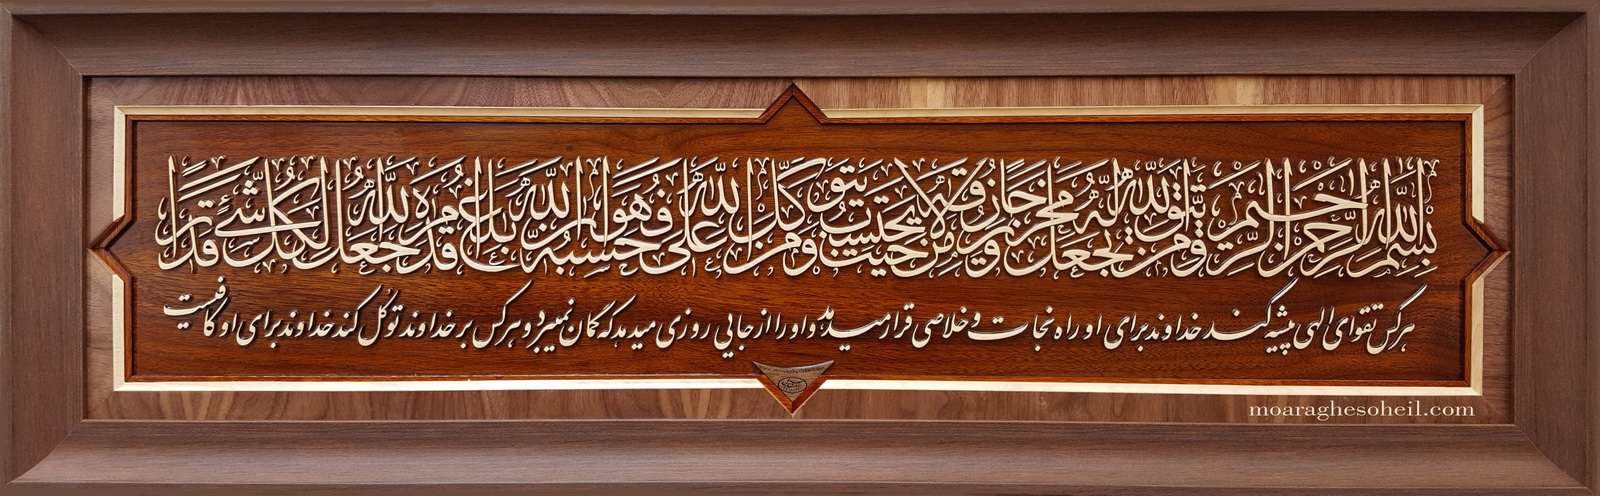 بسم الله الرحمن الرحیم ومن یتق الله یجعل له مخرجا ویرزقه من حیث لا یحتسب ومن یتوکل علی الله فهو حسبه ان الله بالغ امره قد جعل الله لکل شیء قدرا
هرکس تقوای الهی پیشه کند خداوند برای او راه نجات و خلاصی قرار میدهد و او را از جایی روزی میدهد که گمان نمیبرد و هرکس بر خداوند توکل کند خداوند برای او کافیست
moaraghesoheil.com